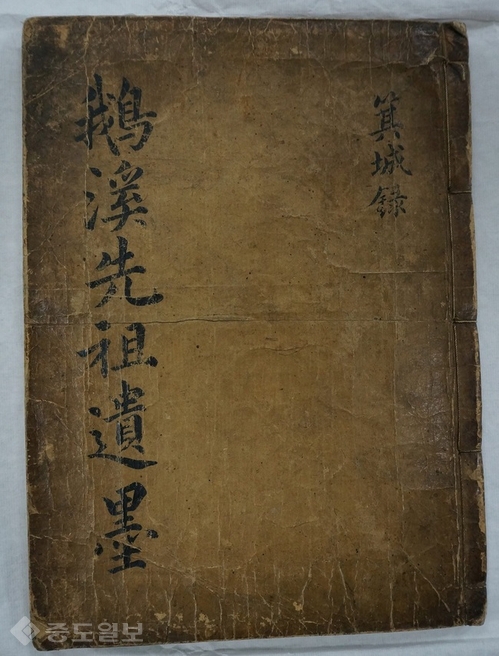 箕城錄
鵝溪先祖遺墨
중도일보